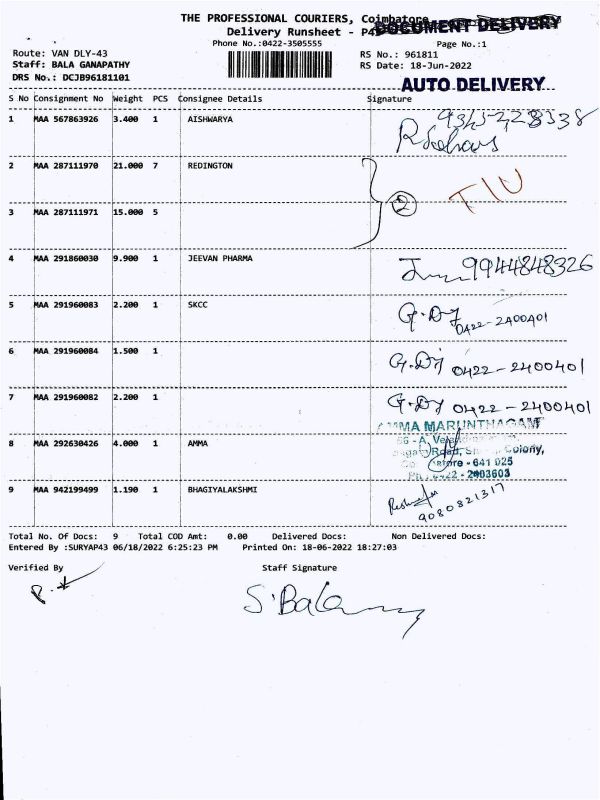 THE PROFESSIONAL COURIERS, Coimbatore
DOCUMENT DELIVERY
Delivery Runsheet - P43
Phone No.:0422-3505555
Page No.:1
Route: VAN DLY-43
RS No.: 961811
Staff: BALA GANAPATHY
RS Date: 18-Jun-2022
DRS No.: DCJB96181101
AUTO DELIVERY
S No Consignment No Weight PCS Consignee Details Signature
1 MAA 567863926 3.400 1 AISHWARYA
2 MAA 287111970 21.000 7 REDINGTON
2 TIU
3 MAA 287111971 15.000 5
4 MAA 291860030 9.900 1 JEEVAN PHARMA 9944848326
5 MAA 291960083 2.200 1 SKCC 0422-2400401
6 MAA 291960084 1.500 1 0422-2400401
7 MAA 291960082 2.200 1 0422-2400401
AMMA MARUNTHAGAM
8 MAA 292630426 4.000 1 AMMA
Road, Colony,
- 641 025
2403603
9 MAA 942199499 1.190 1 BHAGIYALAKSHMI
9080821317
Total No. Of Docs: 9 Total COD Amt: 0.00 Delivered Docs: Non Delivered Docs:
Entered By :SURYAP43 06/18/2022 6:25:23 PM Printed On: 18-06-2022 18:27:03
Verified By Staff Signature
S.Bala